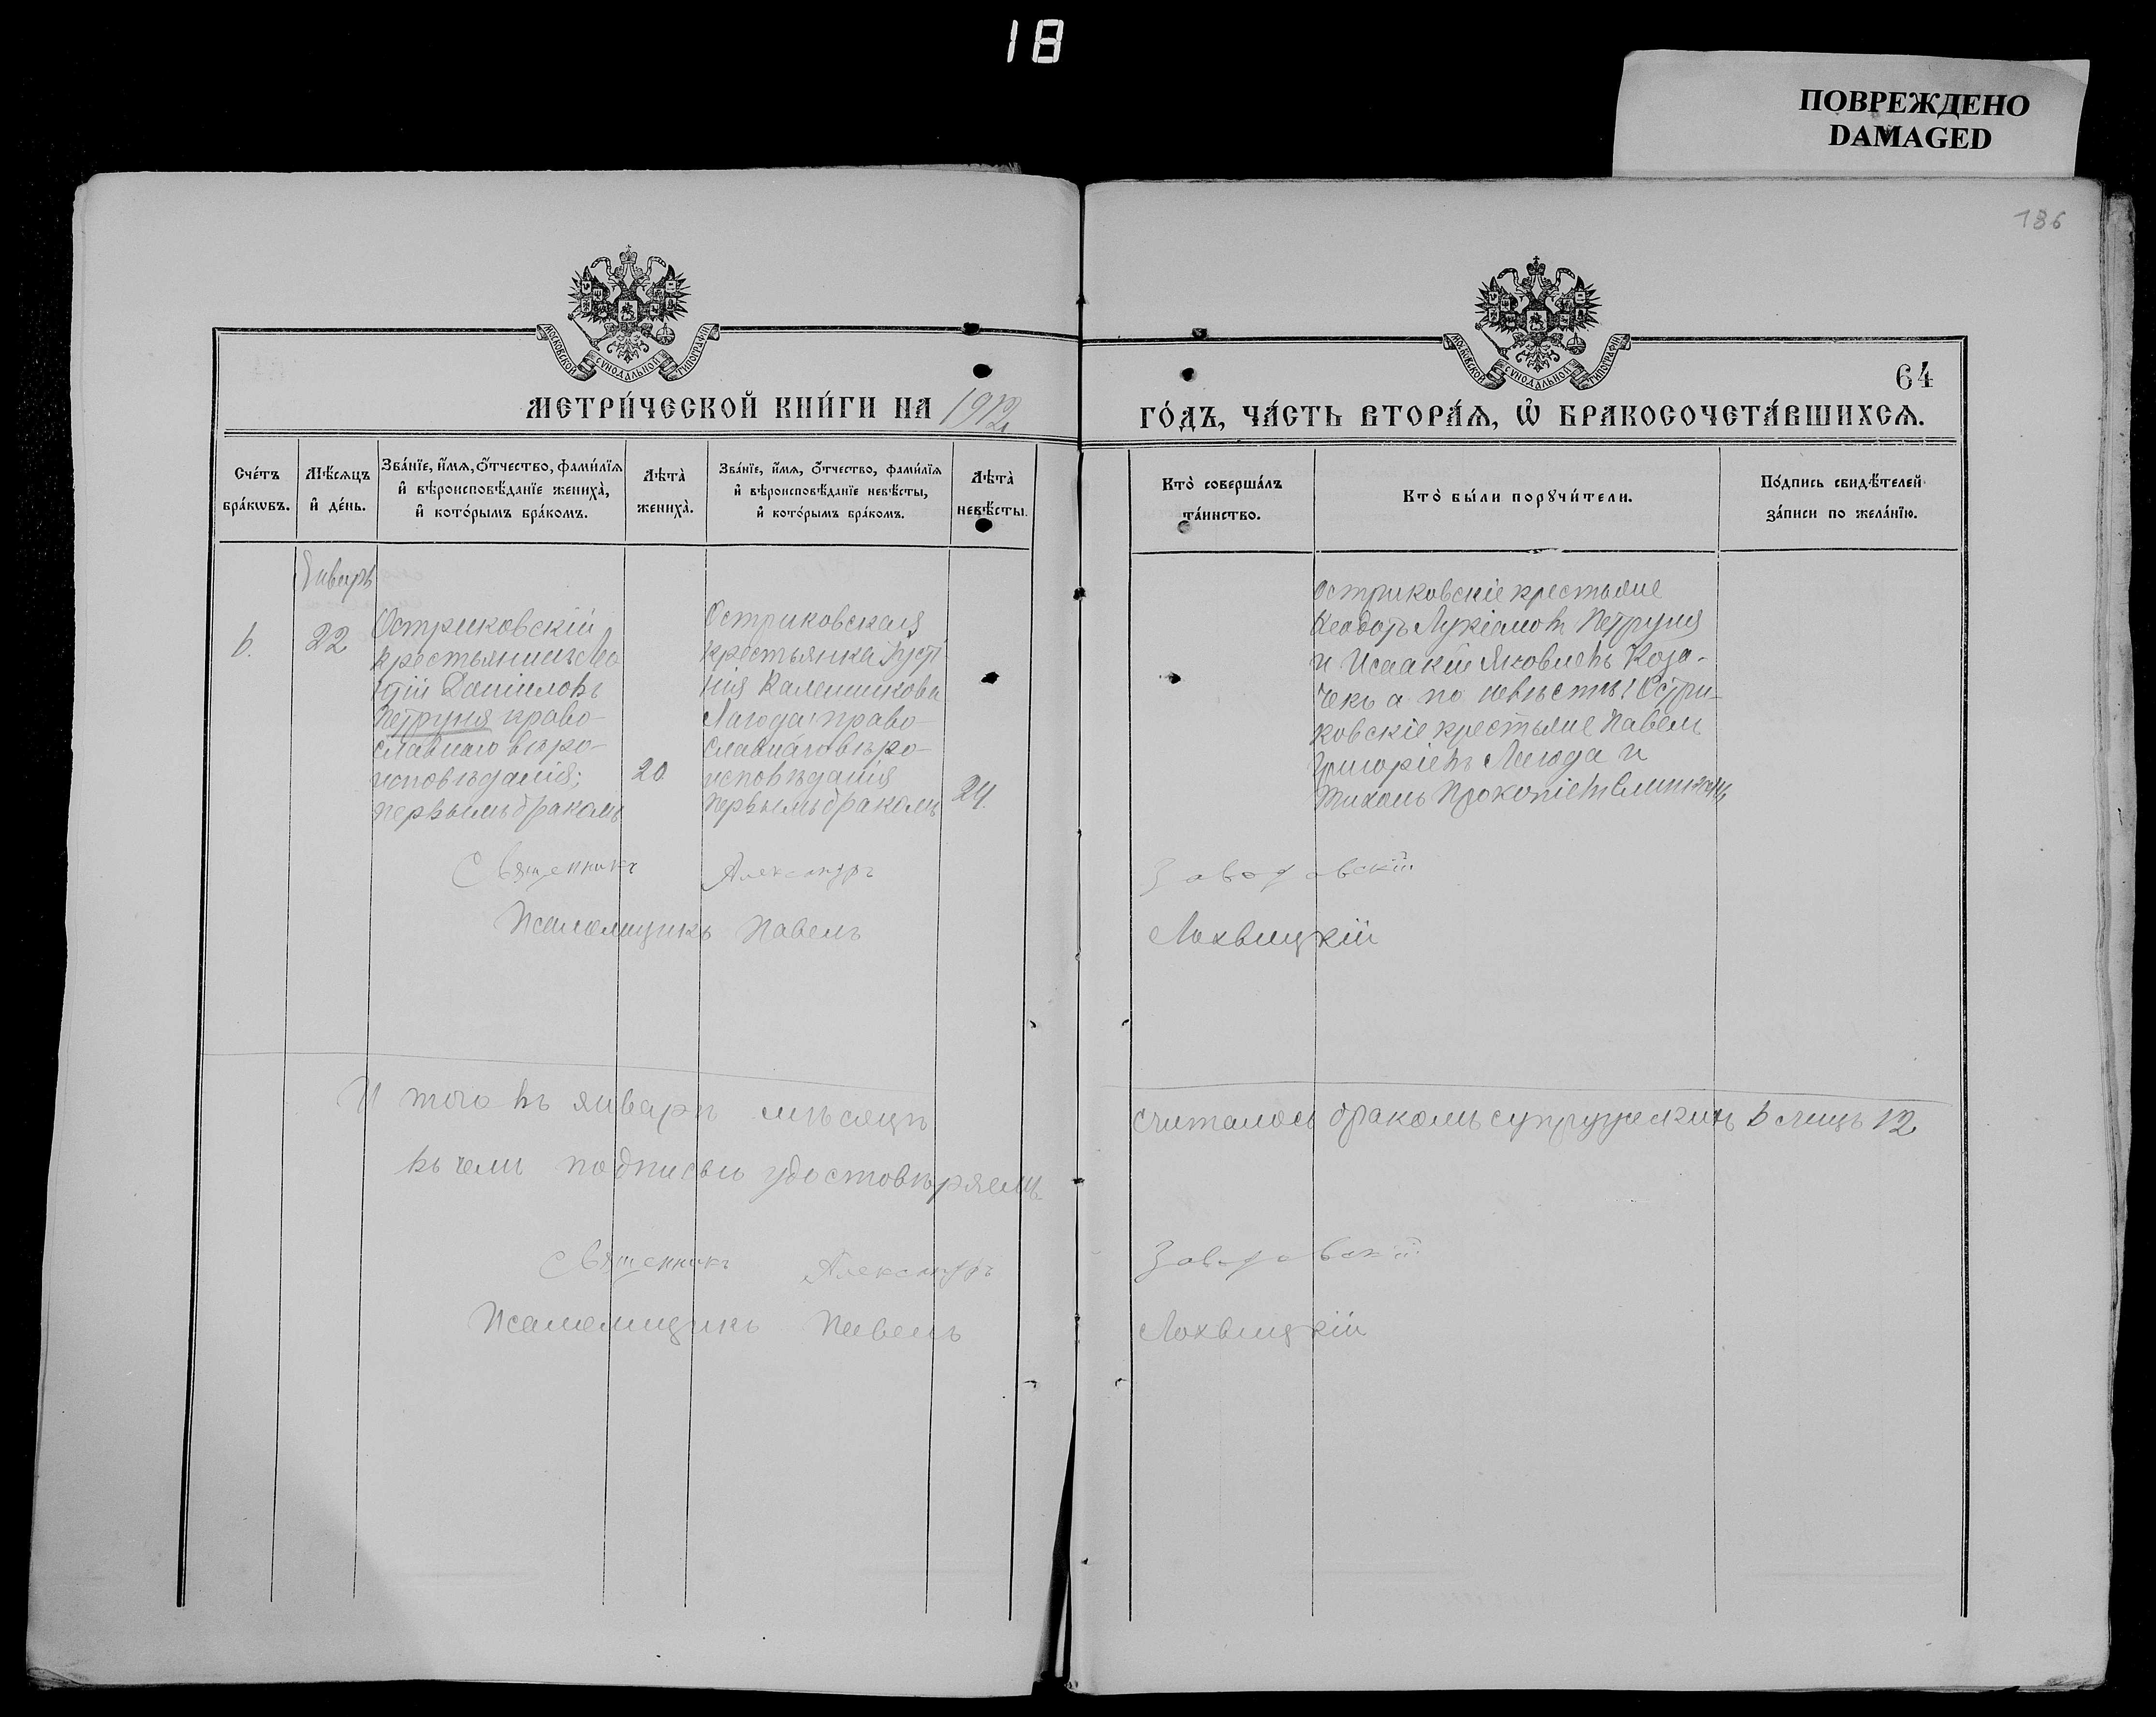 18
ПОВРЕЖДЕНО
DAMAGED
186
МОСКОВСКОЙ СУНОДАЛЬНОЙ ТИПОГРАФІИ
МОСКОВСКОЙ СУНОДАЛЬНОЙ ТИПОГРАФІИ
64
МЕТРИ́ЧЕСКОЙ КНИ́ГИ НА 1912
ГО́ДЪ, ЧА́СТЬ ВТОРА́Ѧ, Ѡ҆ БРАКОСОЧЕТА́ВШИХСѦ.
Сче́тъ
бра́кѡвъ.
Мѣ́сѧцъ
и҆ де́нь.
Зва́нїе, и҆́мѧ, ѻ҆́тчество, фами́лїѧ
и҆ вѣроисповѣ́данїе жениха̀,
и҆ кото́рымъ бра́комъ.
Лѣта̀
жениха̀.
Зва́нїе, и҆́мѧ, ѻ҆́тчество, фами́лїѧ
и҆ вѣроисповѣ́данїе невѣ́сты,
и҆ кото́рымъ бра́комъ.
Лѣта̀
невѣ́сты.
Кто̀ соверша́лъ
та́инство.
Кто̀ бы́ли порꙋчи́тели.
По́дпись свидѣ́телей
за́писи по жела́нїю.
Январь
6.
22
Остриковскій
крестьянинъ
Даніиловъ
Петруня право-
славнаго вѣро-
исповѣданія;
первымъ бракомъ
20
Остриковская
крестьянка Іусти-
нія Калениковa
Лагода православнаго вѣро-
исповѣданія
первымъ бракомъ
24.
Остриковскіе крестьяне
Ѳеодотъ Лукіановъ Петруня
и Исаакій Яковлевъ Коза-
чекъ а по невѣстѣ: Остри-
ковскіе крестьяне Павелъ
Григоріевъ Лагода и
Прокопіевъ
Священникъ Александръ Заводовскій
Псаломщикъ Павелъ Лохвицкій
Итого въ январѣ мѣсяцѣ считалось бракомъ супружескимъ 6 лицъ 12
въ чемъ подписью удостовѣряемъ
Священникъ Александръ Заводовскій
Псаломщикъ Павелъ Лохвицкій